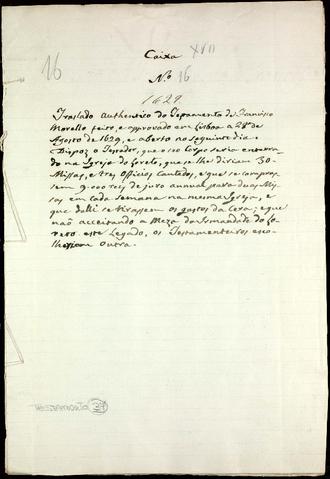 Caixa XVII
16
Nº 16
1629
Traslado Authentico do Testamento de Francisco
Morello feito, e approvado em Lisboa a 28 de
Agosto de 1629, e aberto no seguinte dia.
Dispoz o Testador, que o seo Corpo seria enterra-
do na Igreja do Loreto, que se lhe diriam 30
Missas, e tres Officios Cantados, e que se compras-
sem 9.000 reis de juro annual para duas Mis-
sas em cada semana na mesma Igreja, e
que dalli se tirassem os gastos da Cera; e que
não acceitando a Meza da Irmandade do Lo-
reto este Legado, os Testamenteiros esco-
lhessem outra.
TESTAMENTO